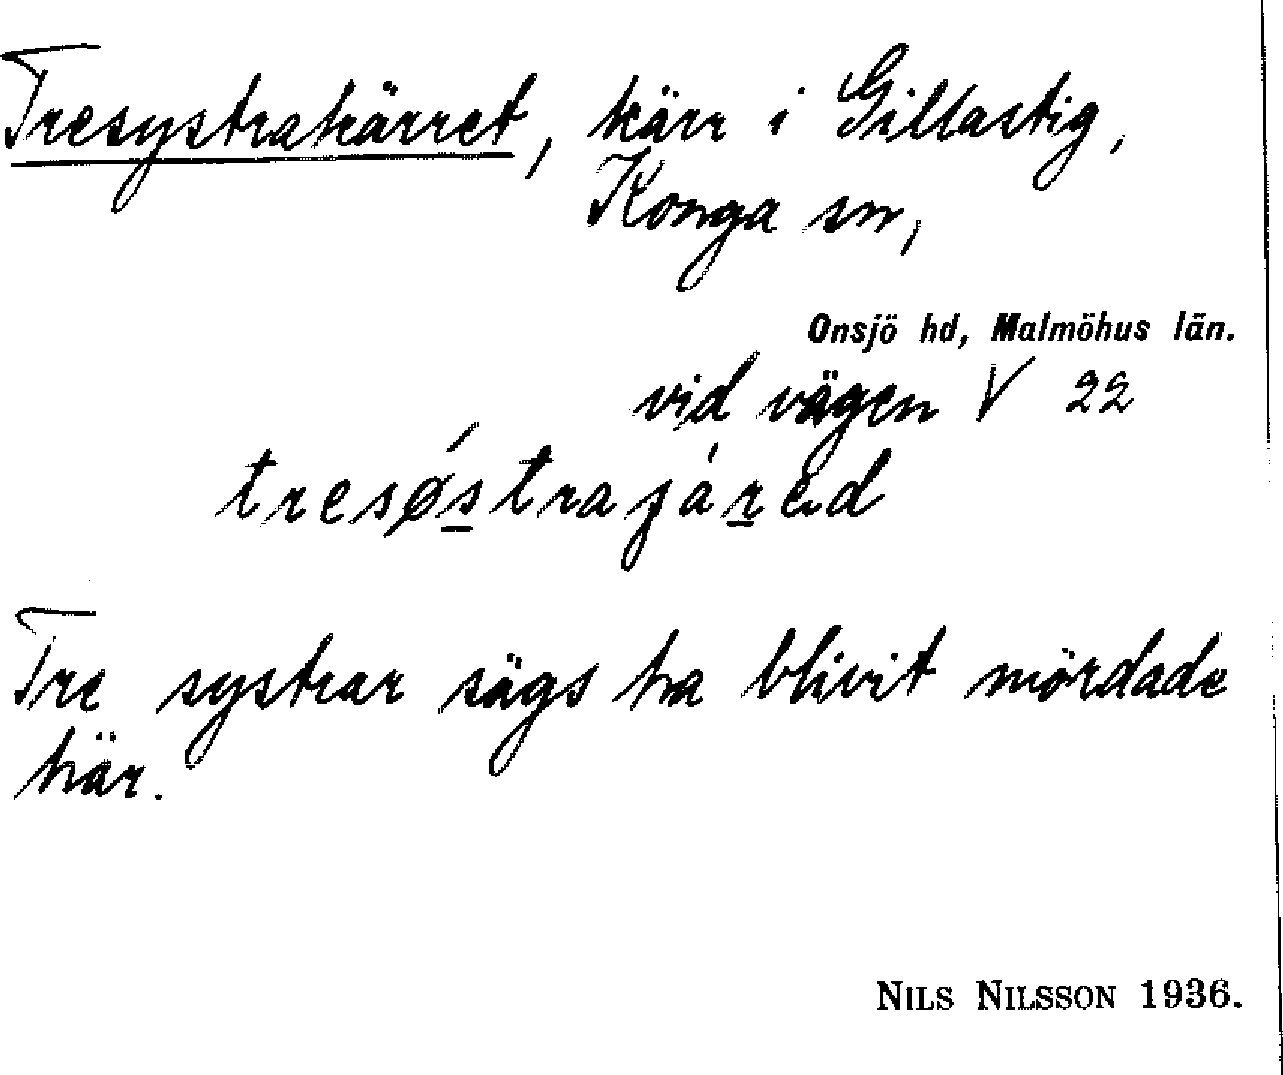 Tresystrakärret, kärr i Gillastig,
Konga sn,
Onsjö hd, Malmöhus län.
vid vägen V 22
tresǿstrajáred
Tre systrar sägs ha blivit mördade
här.
NILS NILSSON 1936.